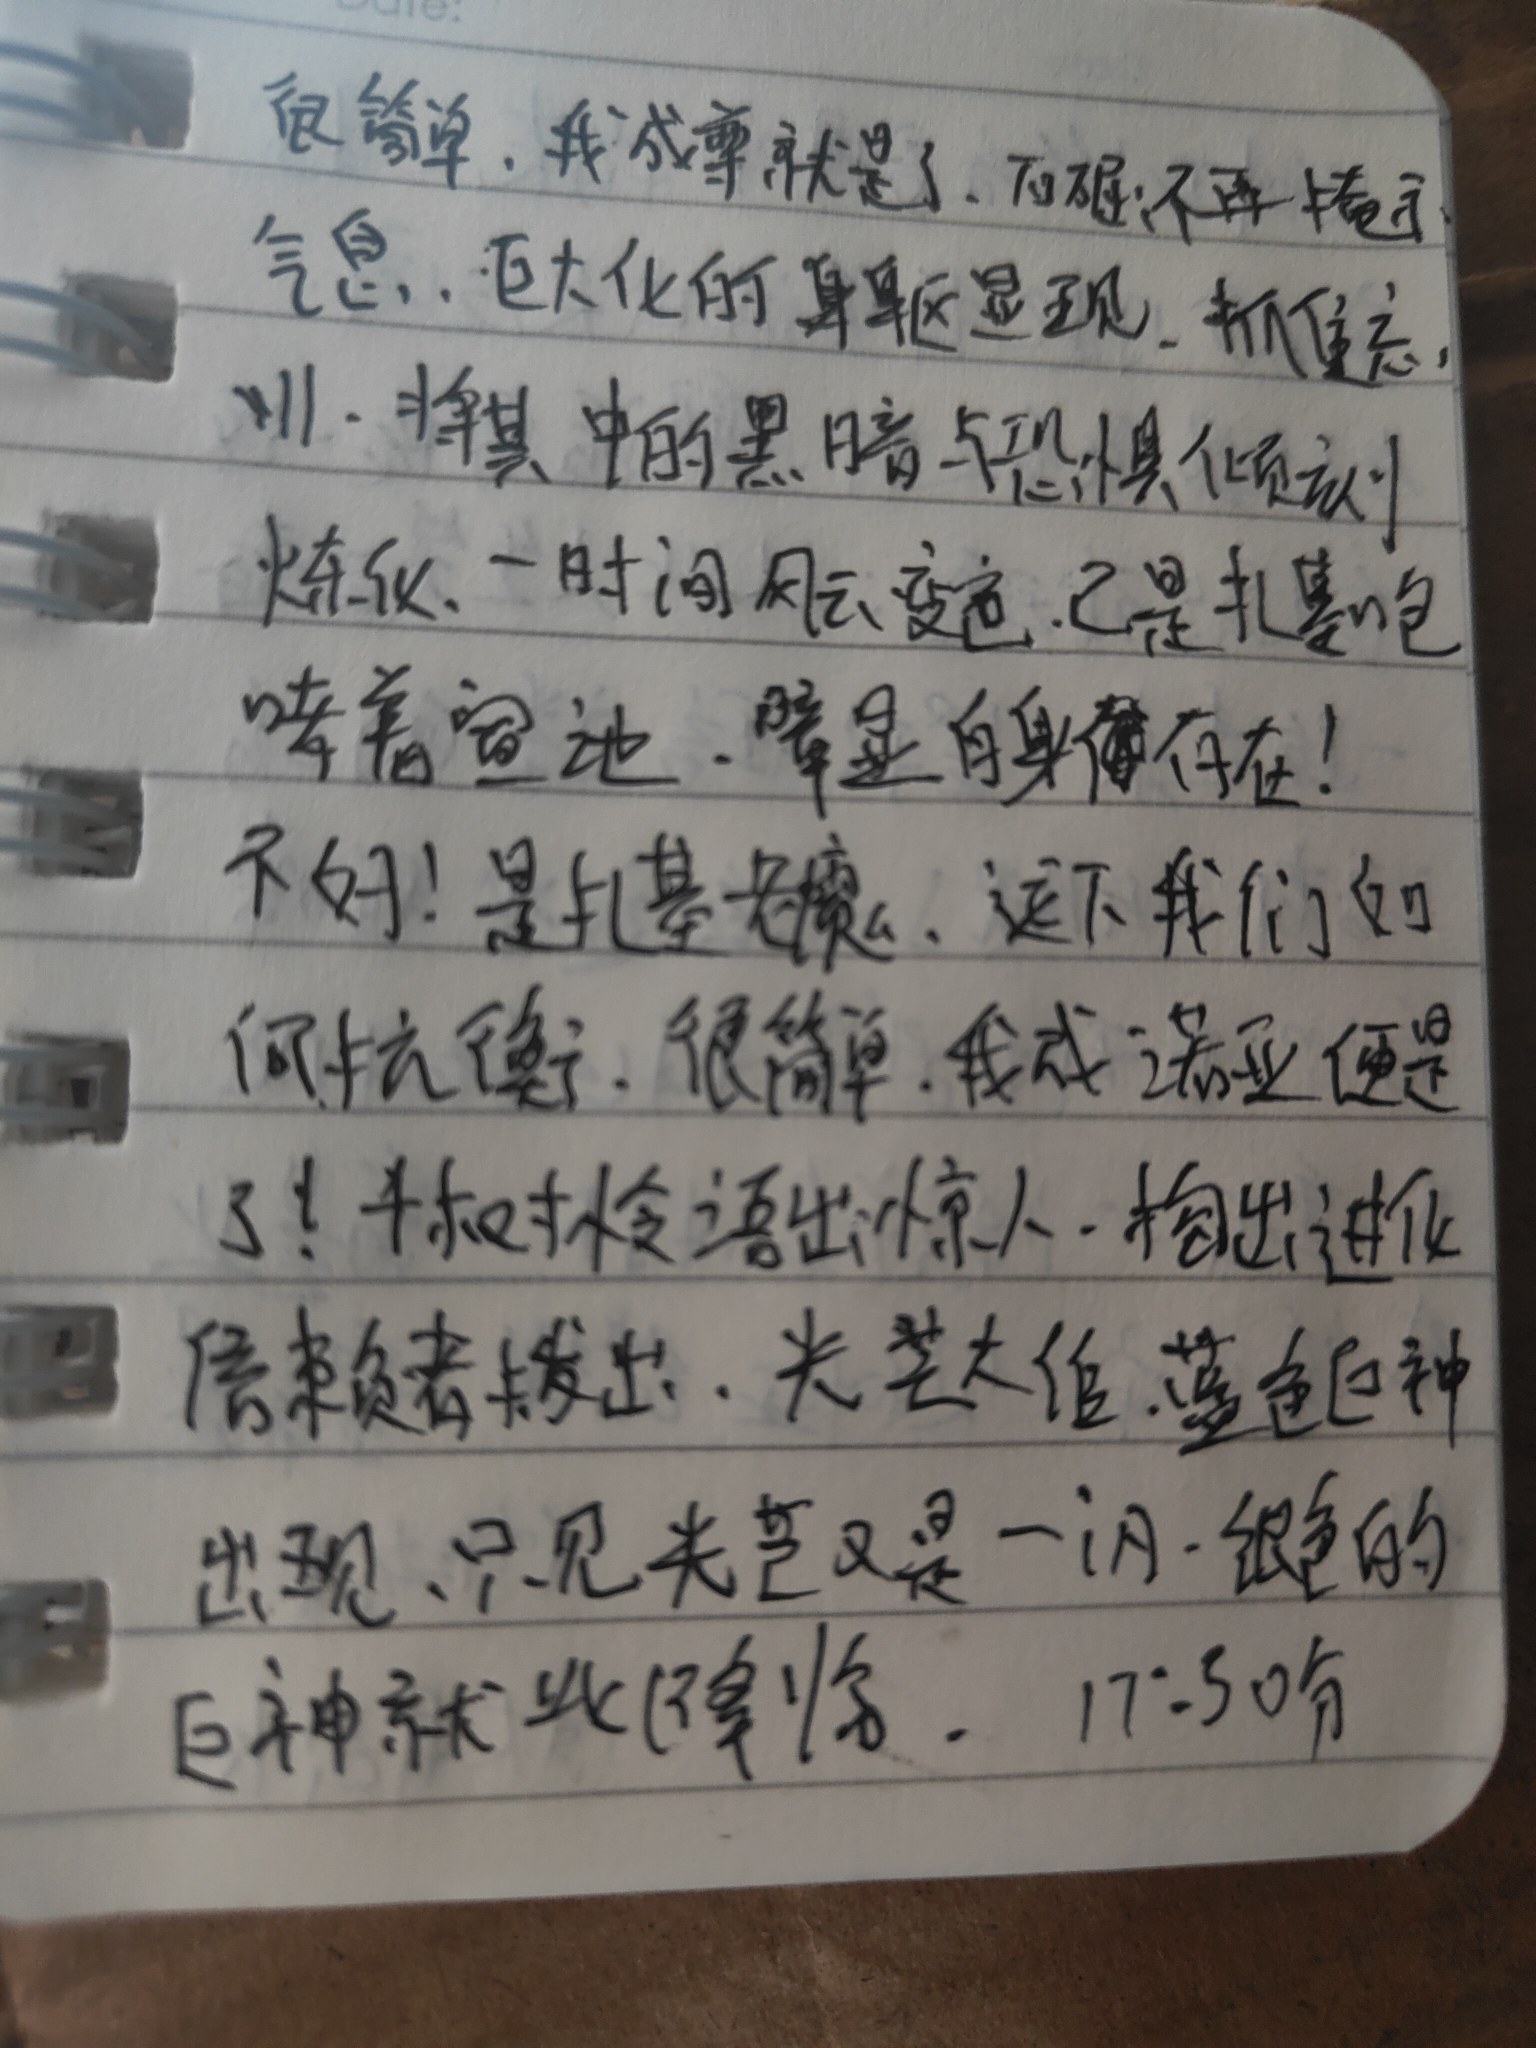 Date:
很简单，我成尊就是了，石碾不再掩
气息，巨大化的身躯显现，抓住
训，将其中的黑暗与恐惧倾刻
炼化，一时间风云变色，已是扎基咆
哮着，彰显自身存在！
不好！是扎基老魔，这下我们如
何抗衡，很简单，我成诺亚便是
了！千树怜语出惊人，掏出进化
信赖者拔出，光芒大作，蓝色巨神
出现，只见光芒又是一闪，银色的
巨神就此降临． 17:50分